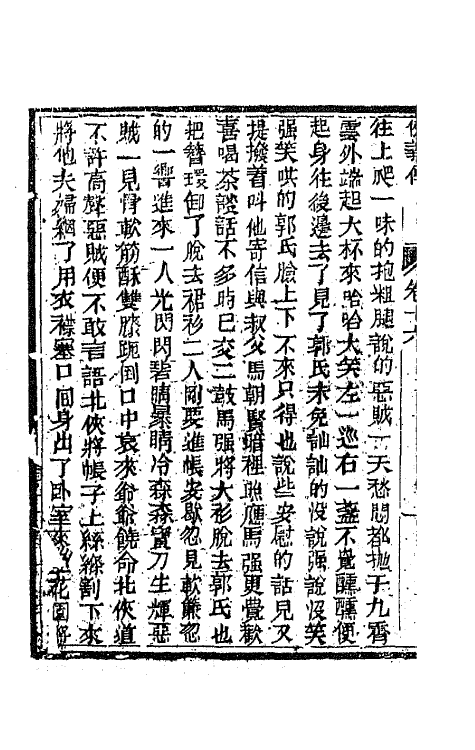 俠義傳 卷十六
往上爬一味的抱粗腿說的惡賊一天愁悶都拋于九霄
雲外端起大杯來哈哈大笑左一巡右一盞不覺醺醺便
起身往後邊去了見了郭氏未免訕訕的沒說強說沒笑
强笑哄的郭氏臉上下不來只得也說些安慰的話見又
提撥着叫他寄信與叔父馬朝賢暗裡照應馬强更覺歡
喜喝茶談話不多時已交二鼓馬强將大衫脫去郭氏也
把簪環卸了脫去裙衫二人剛要進帳安歇忽見軟簾忽
的一響進來一人光閃閃碧睛暴睛冷森森寶刀生輝惡
賊一見骨軟筋酥雙膝跪倒口中哀求爺爺饒命北俠道
不許高聲惡賊便不敢言語北俠將帳子上絲縧割下來
將他夫婦綑了用衣襟塞口回身出了卧室來 花園將